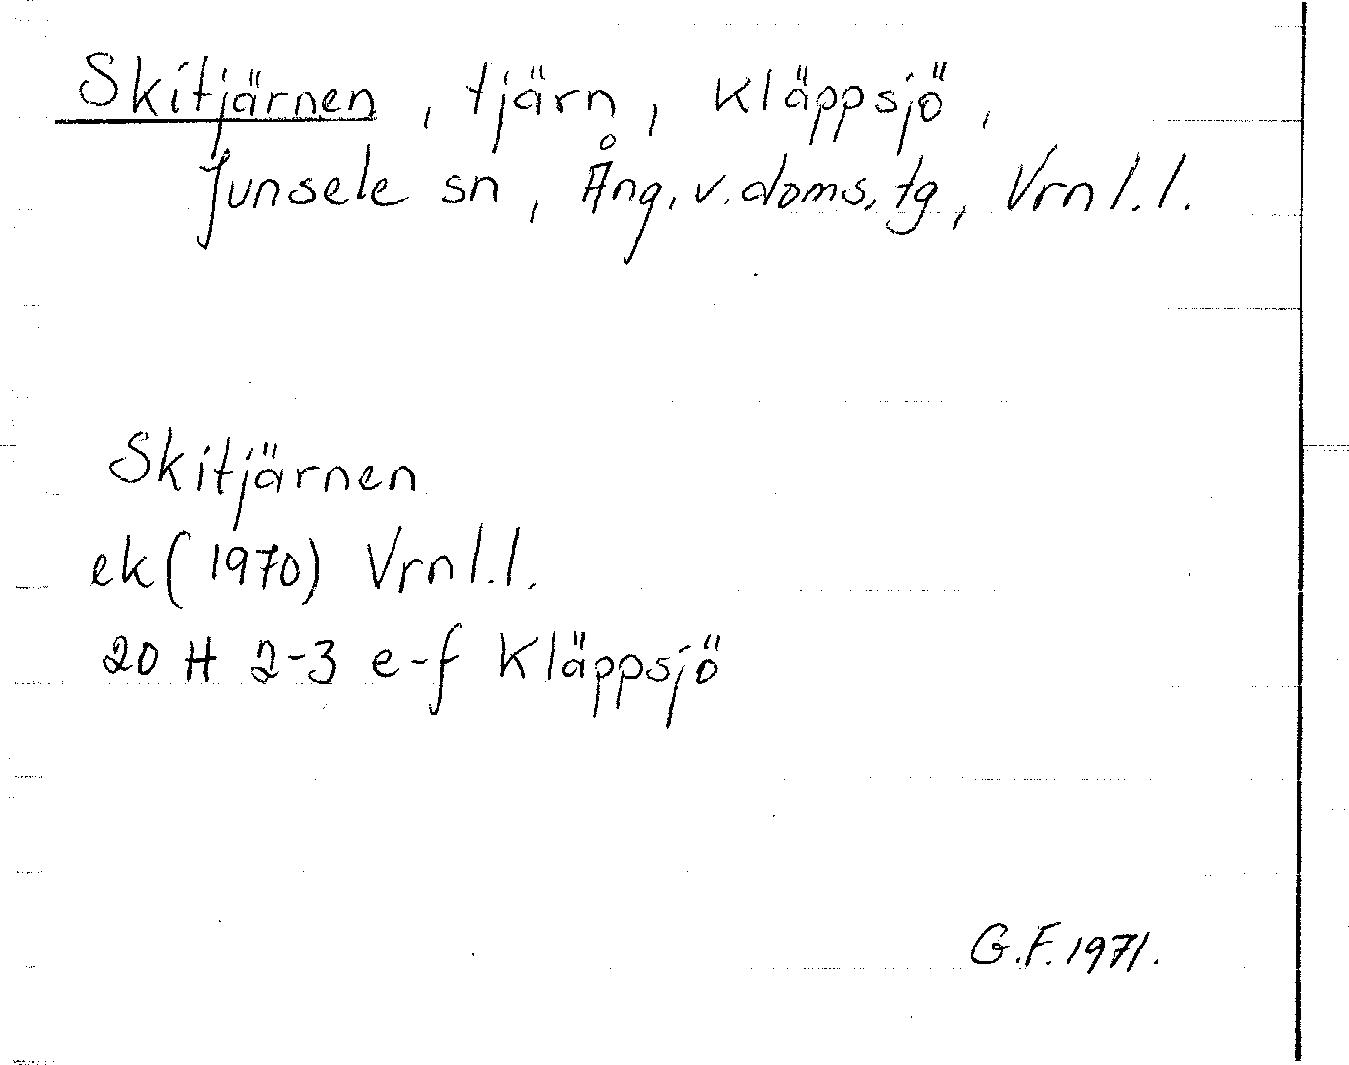 Skitjärnen, tjärn, Kläppsjö,
Junsele sn, Ång. v. doms. tg, Vrnl.l.
Skitjärnen
ek (1970) Vrnl.l.
20 H 2-3 e-f Kläppsjö
G.F. 1971.